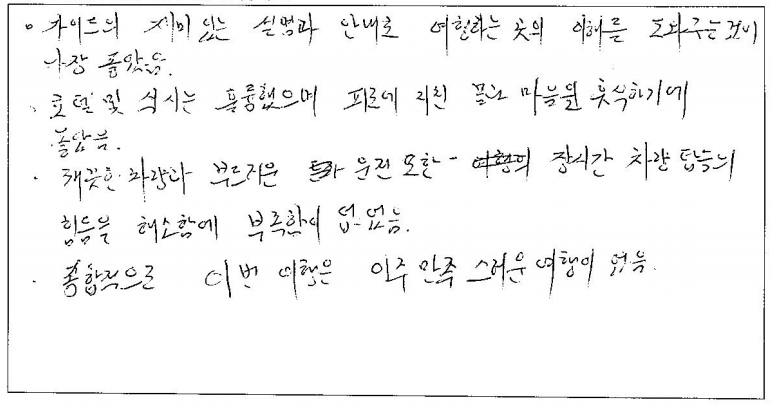 ° 가이드의 재미 있는 설명과 안내로 여행하는 곳의 이해를 도와주는것이
가장 좋았음.
· 호텔 및 식사는 훌륭했으며 피로에 지친 몸과 마음을 휴식하기에
좋았음.
· 깨끗한 차량과 부드러운 운전 또한 장시간 차량 탑승의
힘듬을 해소함에 부족함이 없었음.
· 종합적으로 이번 여행은 아주 만족 스러운 여행이 었음.